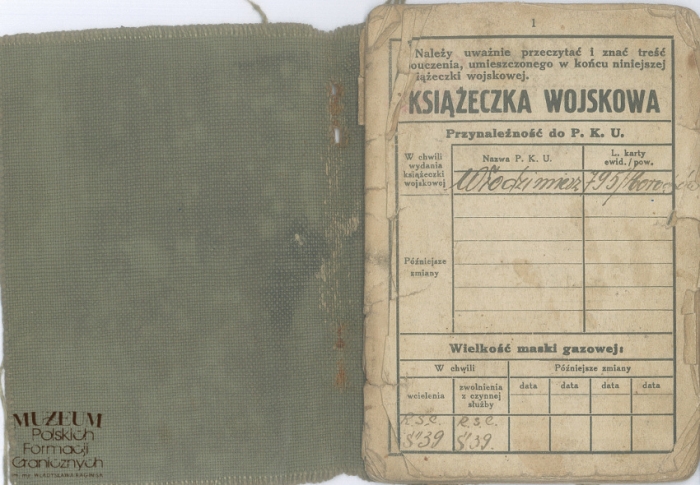 MUZEUM
Polskich
Formacji
Granicznych
1
Należy uważnie przeczytać i znać treść
ouczenia, umieszczonego w końcu niniejszej
iążeczki wojskowej.
KSIĄŻECZKA WOJSKOWA
Przynależność do P. K. U.
W chwili
wydania
książeczki
wojskowej
Nazwa P. K. U.
L. karty
ewid./pow.
Włodzimierz 795/
Późniejsze
zmiany
Wielkość maski gazowej:
W chwili
Późniejsze zmiany
wcielenia
zwolnienia
z czynnej
służby
data data data data
R.S.C. R.S.C.
39 39.